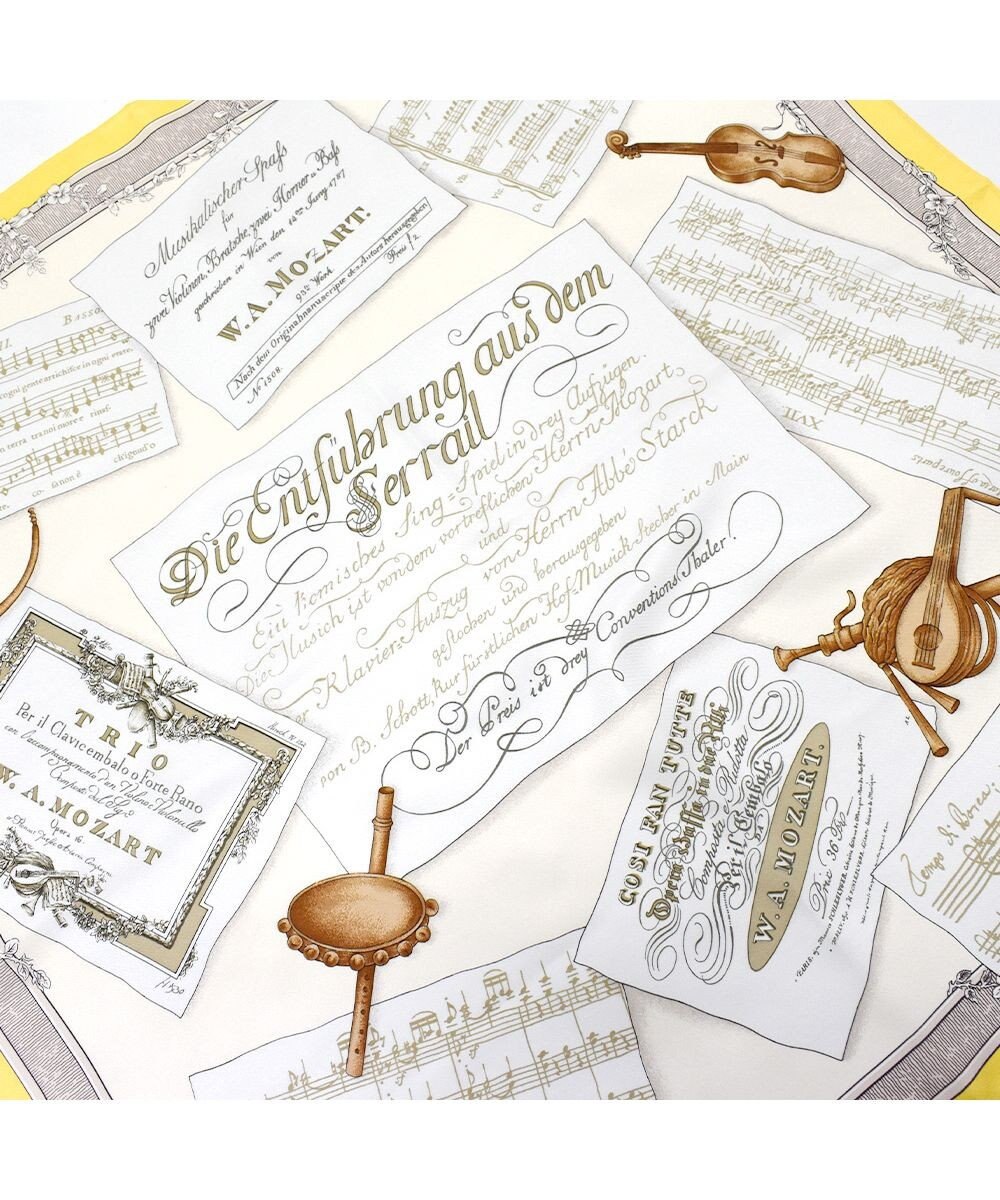 Musikalischer Spaſs
für
zwei Violinen, Bratsche, zwei Hörner u. Baſs
geschrieben in Wien den 14ten Juny 1787
von
W. A. MOZART.
93tes Werk
Nach dem Originalmanuscripte des Autors herausgegeben
No 1508.
Preis f 2
BASSO
cogni gente arrichisce in ogni
in terra tranoi more e rinas:
co- fanon è ch'ignud'o
XVII
Die Entführung aus dem
Serrail
Ein Komisches Sing=Spiel in drey Aufzügen.
Die Musich ist von dem vortreflichen Herrn Mozart
und
Der Klavier=Auszug von Herrn Abbé Starck
gestochen und herausgegeben
von B. Schott, kurfürstlichen Hof=Musick Stecher in Main
Der Preis ist drey Conventions Thaler!
TRIO
Per il Clavicembalo o Forte Piano
con l'accompagnamento d'un Violino e Violoncello
Composte dal Sigr
W. A. MOZART
Opera 16
COSI FAN TUTTE
Opera Buffa in due Atti
Composta e Ridotta
Per il Cembalo
W. A. MOZART.
Prix 36
PARIS,
Tempo di Borea.